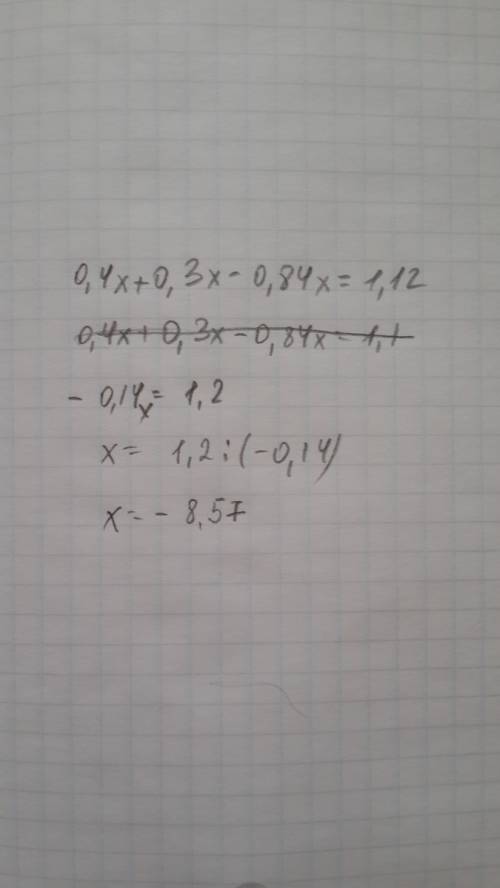 0,4x+0,3x-0,84x=1,12
0,4x+0,3x-0,84x=1,1
-0,14x=1,2
x=1,2:(-0,14)
x=-8,57